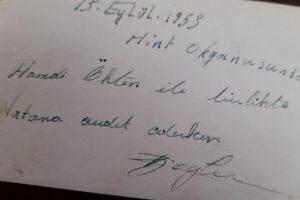 15. Eylül. 1953
Hint Okyanusunda
Hamdi ile birlikte
Vatana avdet ederken